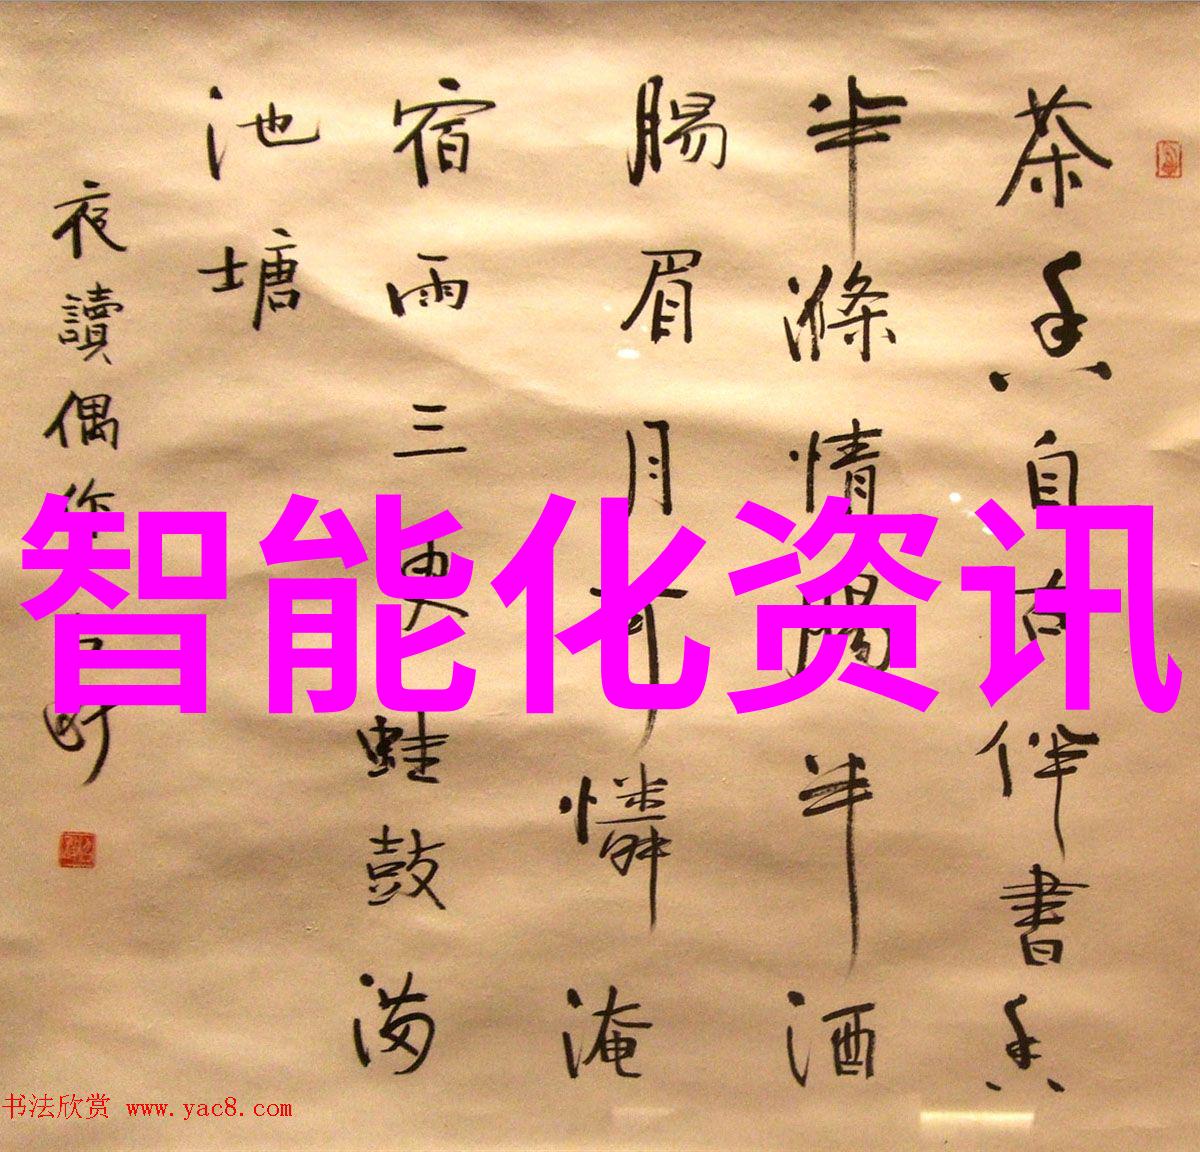 茶香自古伴書香
半滌情腸半酒
腸眉月可憐淹
宿雨三更蛙鼓滿
池塘
夜讀偶作
智能化资讯
书法欣赏 www.yac8.com